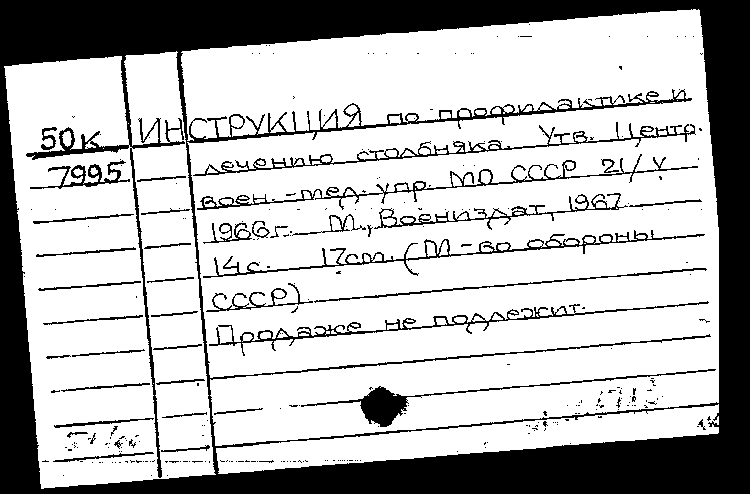 50к ИНСТРУКЦИЯ по профилактике и
7995 лечению столбняка. Утв. Центр.
воен.-мед. упр. МО СССР 21/V
1966г. М., Воениздат, 1967
14с. 17см. (М-во обороны
СССР)
Продаже не подлежит.